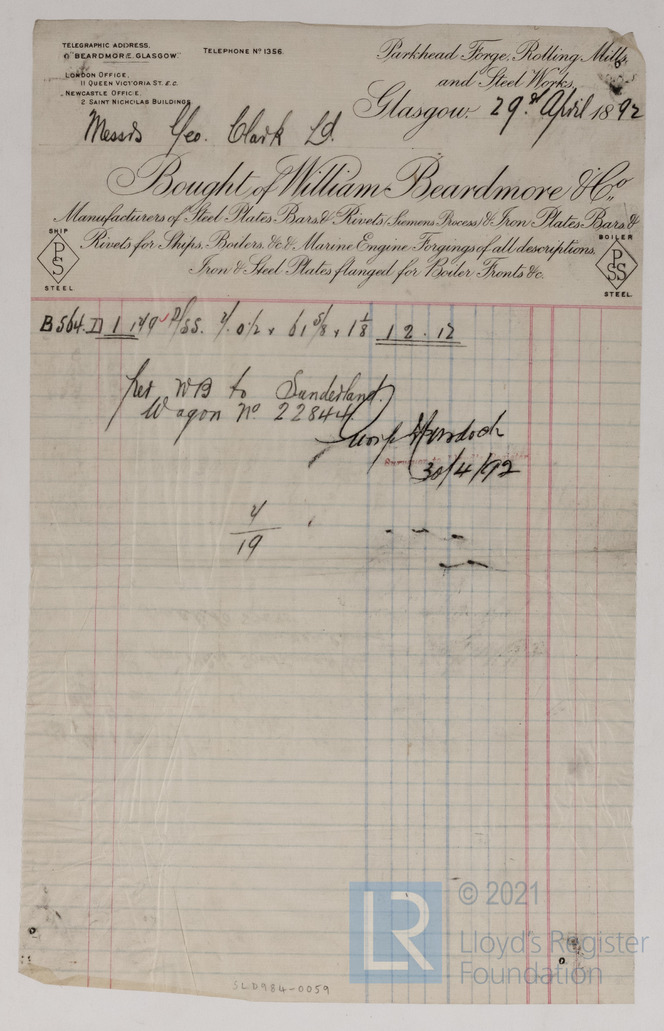 TELEGRAPHIC ADDRESS,
"BEARDMORE. GLASGOW."
TELEPHONE Nº 1356.
LONDON OFFICE,
11 QUEEN VICTORIA ST. E.C.
NEWCASTLE OFFICE.
2 SAINT NICHOLAS BUILDINGS
Parkhead Forge, Rolling Mills,
and Steel Works,
Glasgow. 29 April 1892
Messrs Geo. Clark Ld.
Bought of William Beardmore & Co
Manufacturers of Steel Plates, Bars & Rivets (Siemens Process) & Iron Plates, Bars &
Rivets for Ships, Boilers &c. & Marine Engine Forgings of all descriptions,
Iron & Steel Plates flanged for Boiler Fronts &c.
SHIP
PS
STEEL
BOILER
PSS
STEEL.
B564. 1 61 5/8 x 1 1/8 12.12
per NB to Sunderland
Wagon No 22844
Murdoch
30/4/92
19
SLD984-0059
© 2021
LR
Lloyd's Register
Foundation